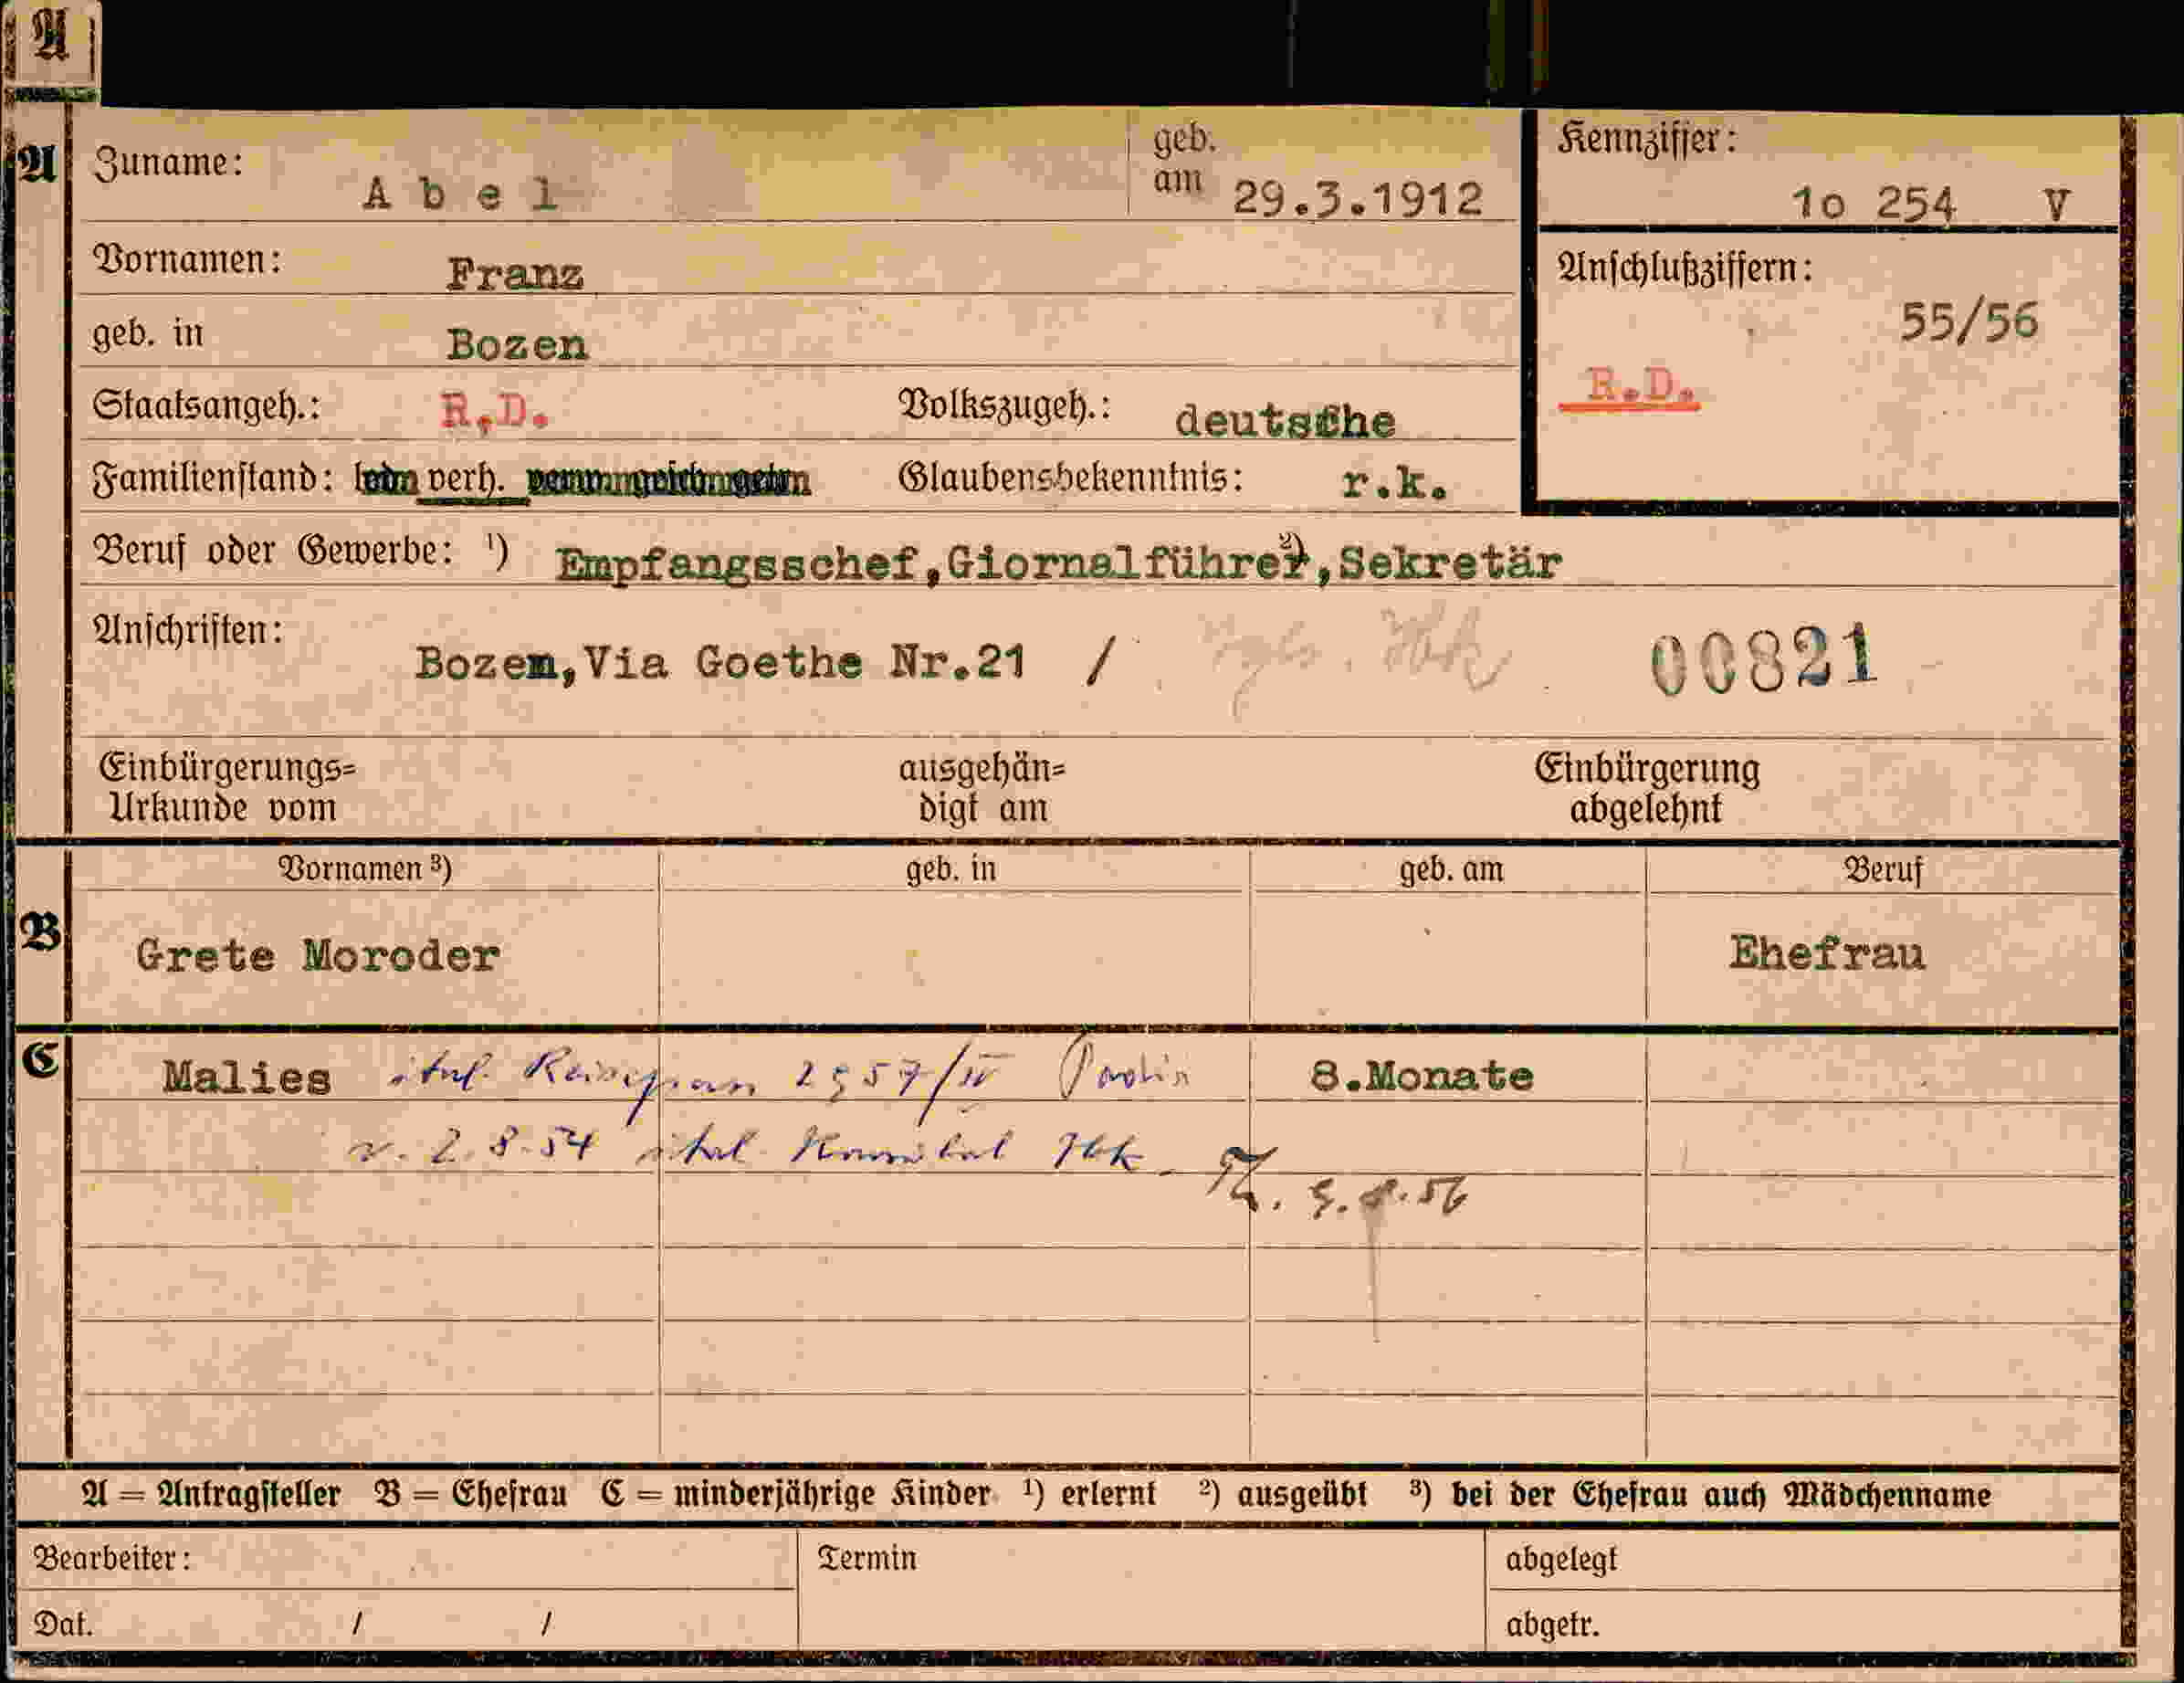 A
A
Zuname: Abel
geb. am 29.3.1912
Kennziffer:
1o 254 V
Vornamen: Franz
Anschlußziffern:
55/56
geb. in Bozen
R.D.
Staatsangeh.: R.D. Volkszugeh.: deutsche
Familienstand: verh. Glaubensbekenntnis: r.k.
Beruf oder Gewerbe: ¹) Empfangsschef,Giornalführer ²),Sekretär
Anschriften:
Bozen,Via Goethe Nr.21 / 00821
Einbürgerungs=
Urkunde vom
ausgehän=
digt am
Einbürgerung
abgelehnt
Vornamen ³) geb. in geb. am Beruf
B
Grete Moroder Ehefrau
C
Malies ital. 8.Monate
v. 2.8.54 ital. Konsulat Ibk.
A = Antragsteller B = Ehefrau C = minderjährige Kinder ¹) erlernt ²) ausgeübt ³) bei der Ehefrau auch Mädchenname
Bearbeiter: Termin abgelegt
Dat. / / abgetr.